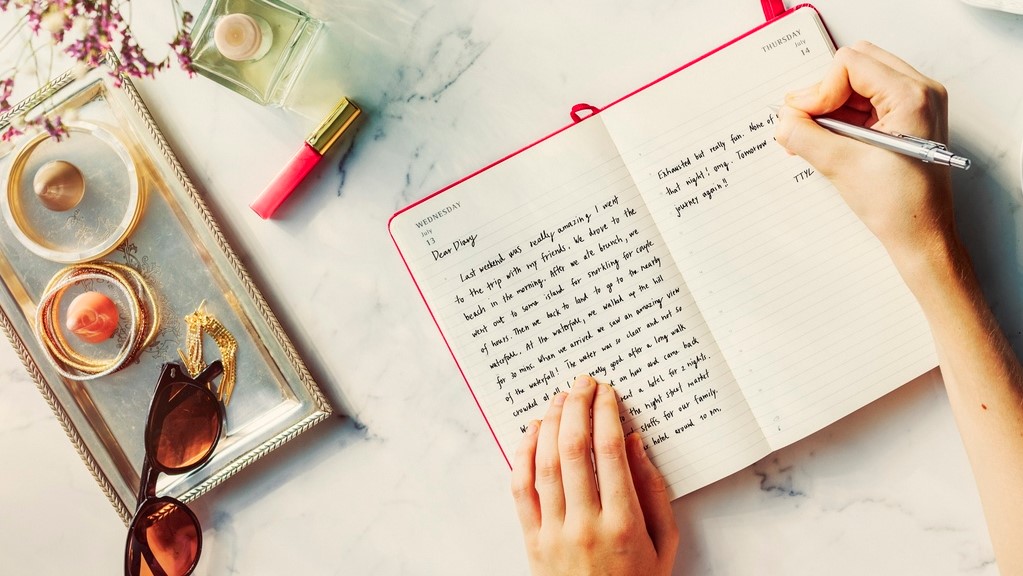 WEDNESDAY
July
13
Dear Diary
Last weekend was really amazing I went
to the trip with my friends. We drove to the
beach in the morning. After we ate brunch, we
went out to some island for snorkling for couple
of hours. Then we back to land to go to the nearby
waterfall. At the waterfall, we walked up the hill
for 30 min. When we arrived we saw an amazing view
of the waterfall! The water was so clear and not so
crowded at all. I really good after a long walk
an hour and came back
a hotel for 2 nights.
the night street market
stuffs for our family.
hotel around 10 pm.
THURSDAY
July
14
Exhausted but really fun. None of
that night! omg. Tomorrow
journey again!!
TTYL